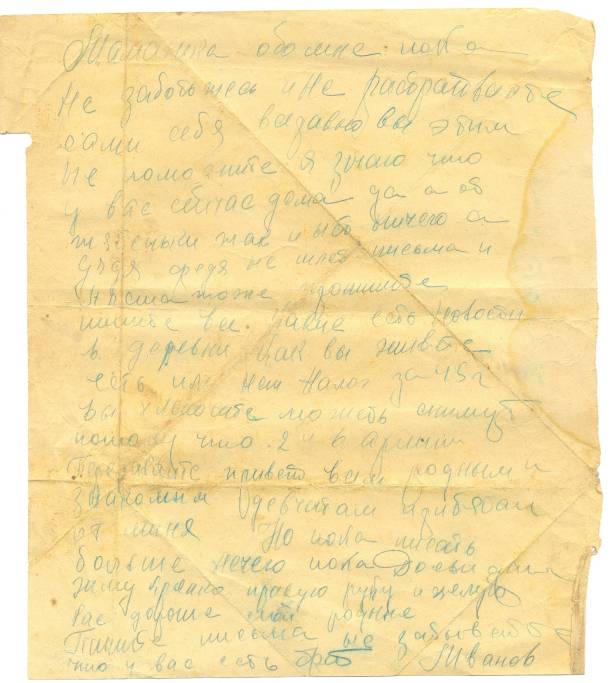 Мамашка обомне пока
не заботьтесь и не растраивайте
сами себя вы этим
не поможите я знаю что
у вас сейчас дома да а от
и ничего а
дядя федя не шлет письма и
письма тоже пропишите
пишите все какие есть новости
в деревни как вы живете
есть или нет налог за 45 г
вы хлопочите может снимут
потому что 2 ч в армии
Передавайте привет всем родным и
знакомым девчатам и ребятам
от миня Но пока писать
больше нечего пока Досвидания
жму крепко правую руку и целую
вас дорогие мои родные
Пишите письма не забывайте
что у вас есть брат Иванов